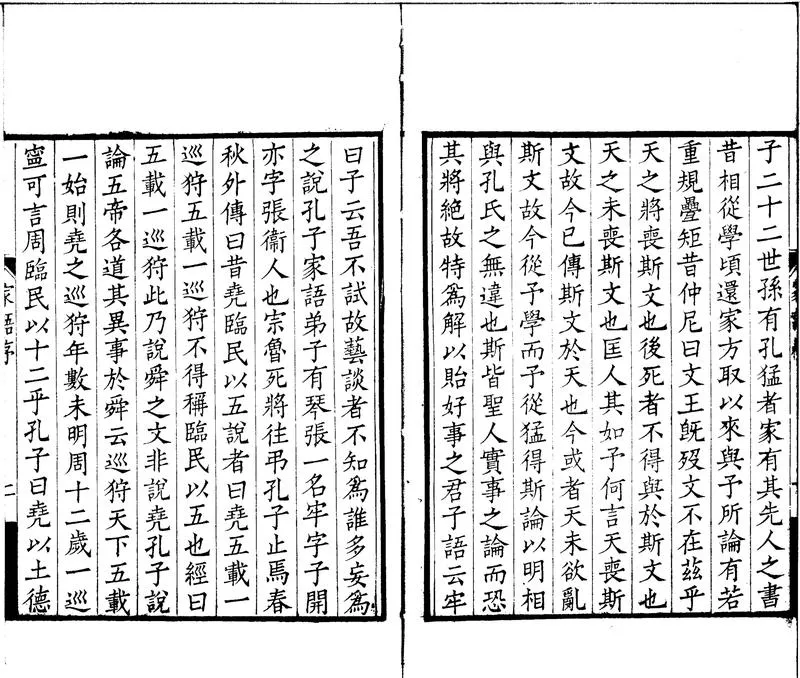 子二十二世孫有孔猛者家有其先人之書
昔相從學頃還家方取以來與予所論有若
重規疊矩昔仲尼曰文王旣歿文不在茲乎
天之將喪斯文也後死者不得與於斯文也
天之未喪斯文也匡人其如予何言天喪斯
文故今已傳斯文於天也今或者天未欲亂
斯文故今從予學而予從猛得斯論以明相
與孔氏之無違也斯皆聖人實事之論而恐
其將絕故特爲解以貽好事之君子語云牢
曰子云吾不試故藝談者不知爲誰多妄爲
之說孔子家語弟子有琴張一名牢字子開
亦字張衞人也宗魯死將往弔孔子止焉春
秋外傳曰昔堯臨民以五說者曰堯五載一
巡狩五載一巡狩不得稱臨民以五也經曰
五載一巡狩此乃說舜之文非說堯孔子說
論五帝各道其異事於舜云巡狩天下五載
一始則堯之巡狩年數未明周十二歲一巡
寍可言周臨民以十二乎孔子曰堯以土德
家語序